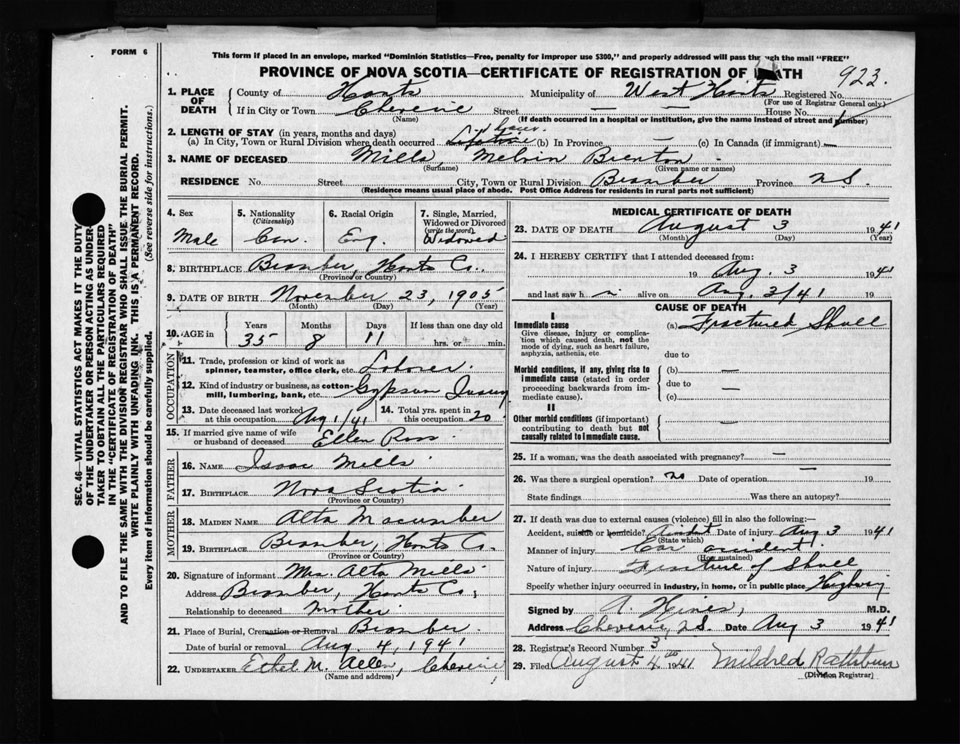 FORM 6
This form if placed in an envelope, marked "Dominion Statistics—Free, penalty for improper use $300," and properly addressed will pass through the mail "FREE"
PROVINCE OF NOVA SCOTIA—CERTIFICATE OF REGISTRATION OF DEATH 923.
1. PLACE OF DEATH
County of Hants Municipality of West Hants Registered No.
(For use of Registrar General only)
If in City or Town Cheverie Street — — House No.
(Name) (If death occurred in a hospital or institution, give the name instead of street and number)
2. LENGTH OF STAY (in years, months and days)
(a) In City, Town or Rural Division where death occurred (b) In Province — (c) In Canada (if immigrant) —
3. NAME OF DECEASED Mills, Melvin Brenton
(Surname) (Given name or names)
RESIDENCE No. Street City, Town or Rural Division Bramber Province N.S.
(Residence means usual place of abode. Post Office Address for residents in rural parts not sufficient)
4. Sex Male
5. Nationality (Citizenship) Can.
6. Racial Origin Eng.
7. Single, Married, Widowed or Divorced (write the word) Widowed
8. BIRTHPLACE Bramber, Hants Co.
(Province or Country)
9. DATE OF BIRTH November 23, 1905
(Month) (Day) (Year)
10. AGE in Years Months Days If less than one day old
35 8 11 hrs. or min.
OCCUPATION
11. Trade, profession or kind of work as spinner, teamster, office clerk, etc. Laborer
12. Kind of industry or business, as cotton-mill, lumbering, bank, etc. Gypsum
13. Date deceased last worked at this occupation Aug 1/41
14. Total yrs. spent in this occupation 20
15. If married give name of wife or husband of deceased Ellen Ross
FATHER
16. NAME Isaac Mills
17. BIRTHPLACE Nova Scotia
(Province or Country)
MOTHER
18. MAIDEN NAME Alta Macumber
19. BIRTHPLACE Bramber, Hants Co.
(Province or Country)
20. Signature of informant Mrs. Alta Mills
Address Bramber, Hants Co,
Relationship to deceased Mother
21. Place of Burial, Cremation or Removal Bramber.
Date of burial or removal Aug. 4, 1941
22. UNDERTAKER Ethel M. Allen, Cheverie
(Name and address)
MEDICAL CERTIFICATE OF DEATH
23. DATE OF DEATH August 3 1941
(Month) (Day) (Year)
24. I HEREBY CERTIFY that I attended deceased from:
19 Aug. 3 1941
and last saw h i alive on Aug. 3/41 19
CAUSE OF DEATH
I
Immediate cause (a) Fractured Skull
Give disease, injury or complication which caused death, not the mode of dying, such as heart failure, asphyxia, asthenia, etc
due to
Morbid conditions, if any, giving rise to immediate cause (stated in order proceeding backwards from immediate cause).
(b) —
due to —
(c)
II
Other morbid conditions (if important) contributing to death but not causally related to immediate cause.
25. If a woman, was the death associated with pregnancy? —
26. Was there a surgical operation? no Date of operation — 19
State findings Was there an autopsy?
27. If death was due to external causes (violence) fill in also the following:
Accident, suicide or homicide? Accident Date of injury Aug 3 1941
(State which)
Manner of injury Car accident.
(How sustained)
Nature of injury Fracture of Skull
Specify whether injury occurred in industry, in home, or in public place Highway
Signed by A. Hines, M.D.
Address Cheverie, N.S. Date Aug 3 1941
28. Registrar's Record Number 3
29. Filed August 4th 1941 Mildred Rathbun
(Division Registrar)
SEC. 46—VITAL STATISTICS ACT MAKES IT THE DUTY
OF THE UNDERTAKER OR PERSON ACTING AS UNDER-
TAKER TO OBTAIN ALL THE PARTICULARS REQUIRED
IN THE "CERTIFICATE OF REGISTRATION OF DEATH"
AND TO FILE THE SAME WITH THE DIVISION REGISTRAR WHO SHALL ISSUE THE BURIAL PERMIT.
WRITE PLAINLY WITH UNFADING INK. THIS IS A PERMANENT RECORD.
Every item of information should be carefully supplied. (See reverse side for instructions.)